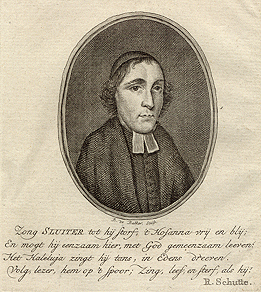 Zong SLUITER tot hij stierf, 't Hosanna vrij en blij;
En mogt hij eenzaam hier, met God gemeenzaam leeven:
Het Haleluja zingt hij tans, in Edens dreeven.
Volg, lezer, hem op 't spoor; Zing, leef, en sterf, als hij:
R. Schutte.